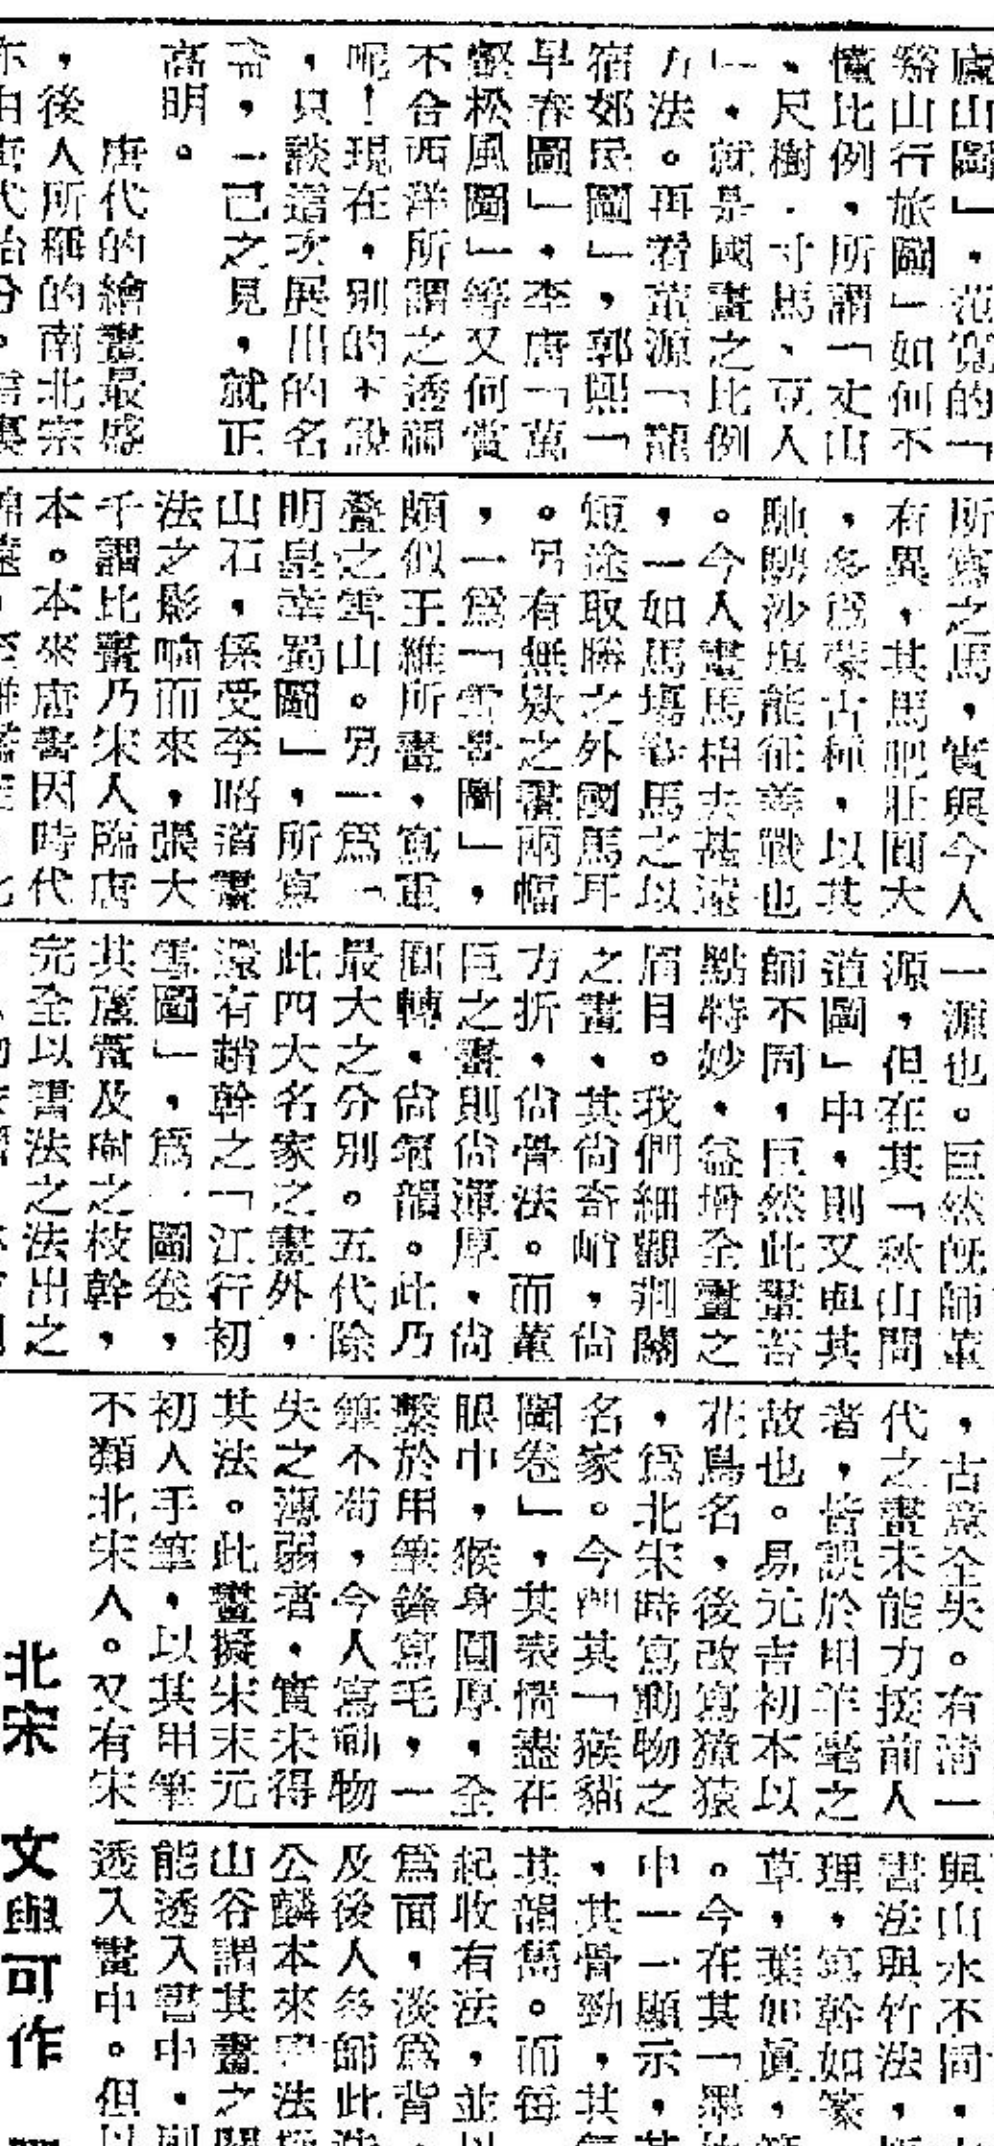 廬山圖」，范寬的「
谿山行旅圖」如何不
懂比例，所謂「丈山
、尺樹．寸馬、豆人
」．就是國畫之比例
方法。再看董源「龍
宿郊民圖」，郭熙「
早春圖」，李唐「萬
壑松風圖」等又何嘗
不合西洋所謂之透視
呢！現在，別的不說
，只談這次展出的名
畫，一己之見，就正
高明。
唐代的繪畫最盛
，後人所稱的南北宗
亦由唐代始分。
所寫之馬，實與今人
有異，其馬肥壯圓大
，多為蒙古種，以其
馳騁沙塲能征善戰也
。今人畫馬相去甚遠
，一如馬塲爭馬之以
短途取勝之外國馬耳
。另有無欵之畫兩幅
，一爲「雪景圖」，
頗似王維所畫，寫重
疊之雪山。另一爲「
明皇幸蜀圖」，所寫
山石，係受李昭道畫
法之影响而來，張大
千謂此畫乃宋人臨唐
本。本來唐畫因時代
一源也。巨然旣師董
源，但在其「秋山問
道圖」中，則又與其
師不同，巨然此畫苔
點特妙，益增全畫之
眉目。我們細觀荆關
之畫、其尙奇峭，尙
方折，尙骨法。而董
巨之畫則尙渾厚，尙
圓轉，尙氣韻。此乃
最大之分別。五代除
此四大名家之畫外，
還有趙幹之「江行初
雪圖」，爲一圖卷，
其蘆葦及樹之枝幹，
完全以書法之法出之
，古意全失。有清一
代之畫未能力接前人
者，皆誤於用羊毫之
故也。易元吉初本以
花鳥名，後改寫獐猿
，爲北宋時寫動物之
名家。今觀其「猴貓
圖卷」，其表情盡在
眼中，猴身圓厚，全
繫於用筆鋒寫毛，一
筆不苟，今人寫動物
失之薄弱者，實未得
其法。此畫擬宋末元
初人手筆，以其用筆
不類北宋人。又有宋
北宋　文與可作
與山水不同，
書法與竹法，
理，寫幹如篆
草，葉如眞，
。今在其「墨
中一一顯示，
，其骨勁，其
其韻雋。而每
起收有法，並以
爲面，淡爲背
及後人多師此法
公麟本來書法
山谷謂其畫之關
能透入書中，則
透入畫中。但以